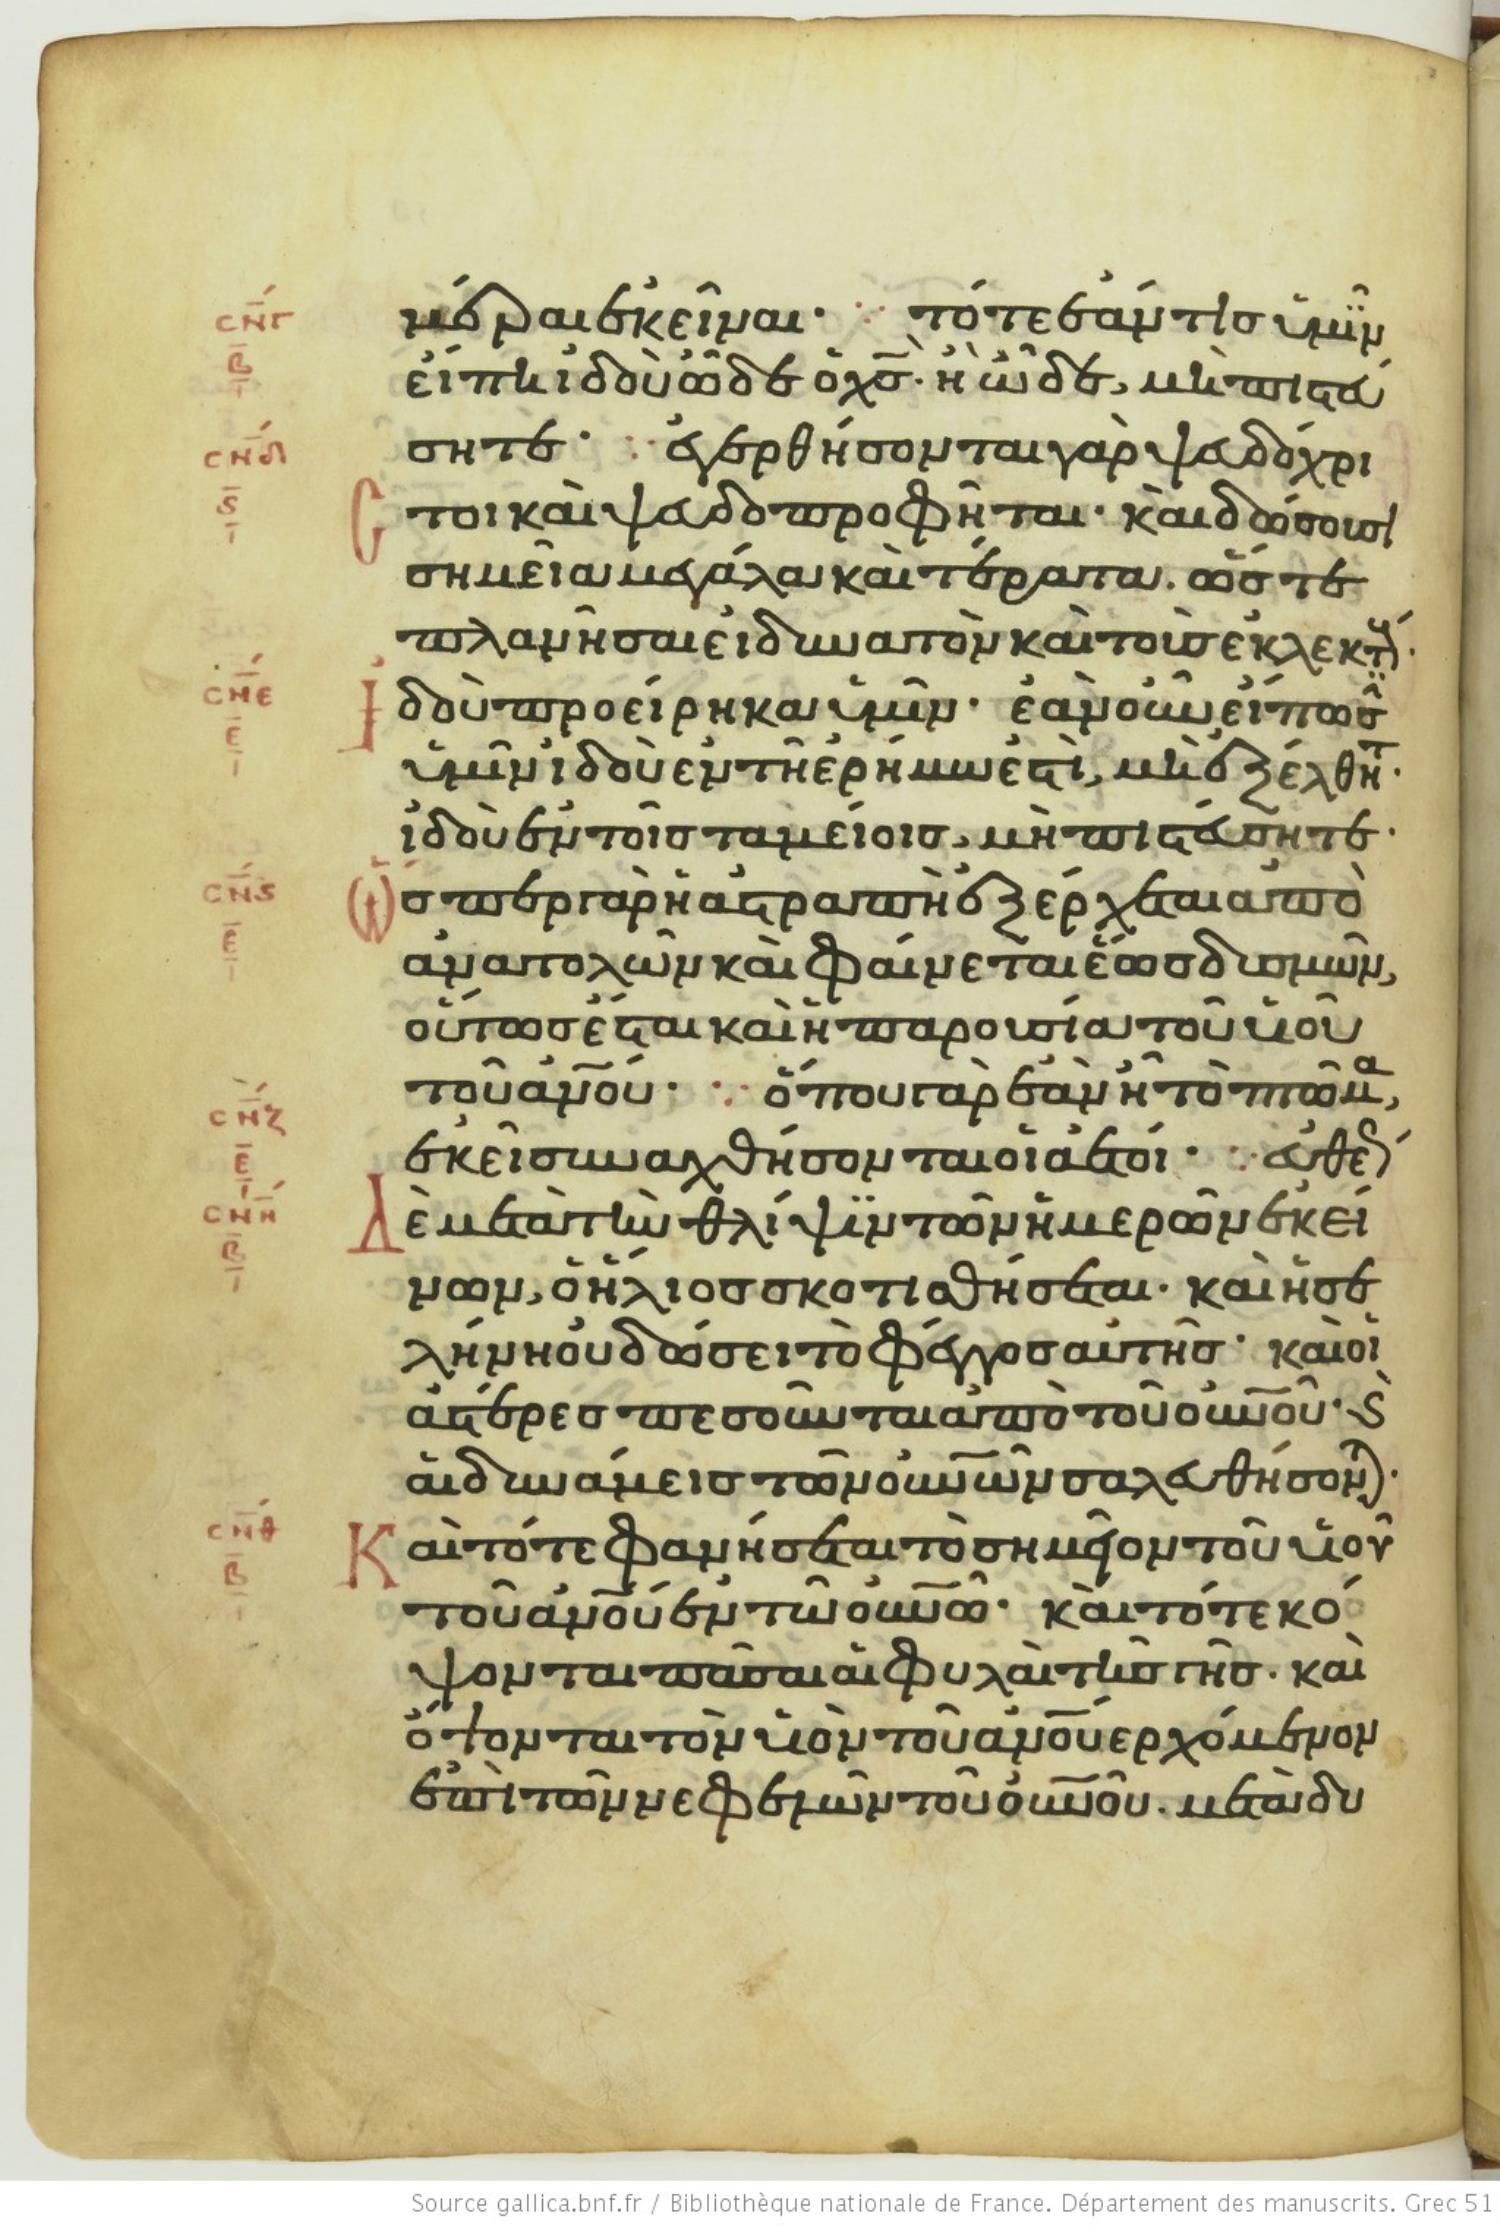 σνγ
β
μέραι ἐκεῖναι· ⁘ τότε ἐάν τις ὑμῖν
εἴπῃ ἰδοὺ ὧδε ὁ χ̅ς̅· ἢ ὧδε, μὴ πιστεύ
σνδ
ς
σητε· ⁘ ἐγερθήσονται γὰρ ψευδόχρι
τοι καὶ ψευδοπροφῆται· καὶ δώσουσι
σημεῖα μεγάλα καὶ τέρατα. ὥστε
πλανῆσαι εἰ δυνατὸν καὶ τοὺς ἐκλεκτούς·
σνε
ε
Ἰδοὺ προείρηκα ὑμῖν· ἐὰν οὖν εἴπωσ
ὑμῖν ἰδοὺ ἐν τῇ ἐρήμω ἐστὶ, μὴ ἐξέλθητ·
ἰδοὺ ἐν τοῖς ταμείοις, μὴ πιστεύσητε·
σνς
ε
Ὥσπερ γὰρ ἡ ἀστραπὴ ἐξέρχεται ἀπὸ
ἀνατολῶν καὶ φαίνεται ἕως δυσμῶν,
οὕτως ἔσται καὶ ἡ παρουσία τοῦ υἱοῦ
σνζ
ε
τοῦ ἀν̅ο̅υ̅· ⁘ ὅπου γὰρ ἐὰν ᾖ τὸ πτῶμα,
ἐκεῖ συναχθήσονται οἱ ἀετοί· ⁘ εὐθέ
σνη
β
Δὲ μετὰ τὴν θλίψϊν τῶν ἡμερῶν ἐκεί
νων, ὁ ἥλιος σκοτισθήσεται· καὶ ἡ σε
λήνη οὐ δώσει τὸ φέγγος αὐτῆς· καὶ οἱ
ἀστέρες πεσοῦνται ἀπὸ τοῦ οὐν̅ο̅ῦ· ϗ
αἱ δυνάμεις τῶν οὐν̅ῶν σαλευθήσον·
σνθ
β
Καὶ τότε φανήσεται τὸ σημεῖον τοῦ υἱοῦ
τοῦ ἀν̅ο̅υ̅ ἐν τῶ οὐν̅ῶ· καὶ τότε κό
ψονται πᾶσαι αἱ φυλαὶ τῆς γῆς· καὶ
ὄψονται τὸν υἱὸν τοῦ ἀν̅ο̅υ̅ ἐρχόμενον
ἐπὶ τῶν νεφελῶν τοῦ οὐν̅ο̅ῦ. μετὰ δυ
Source gallica.bnf.fr / Bibliothèque nationale de France. Département des manuscrits. Grec 51